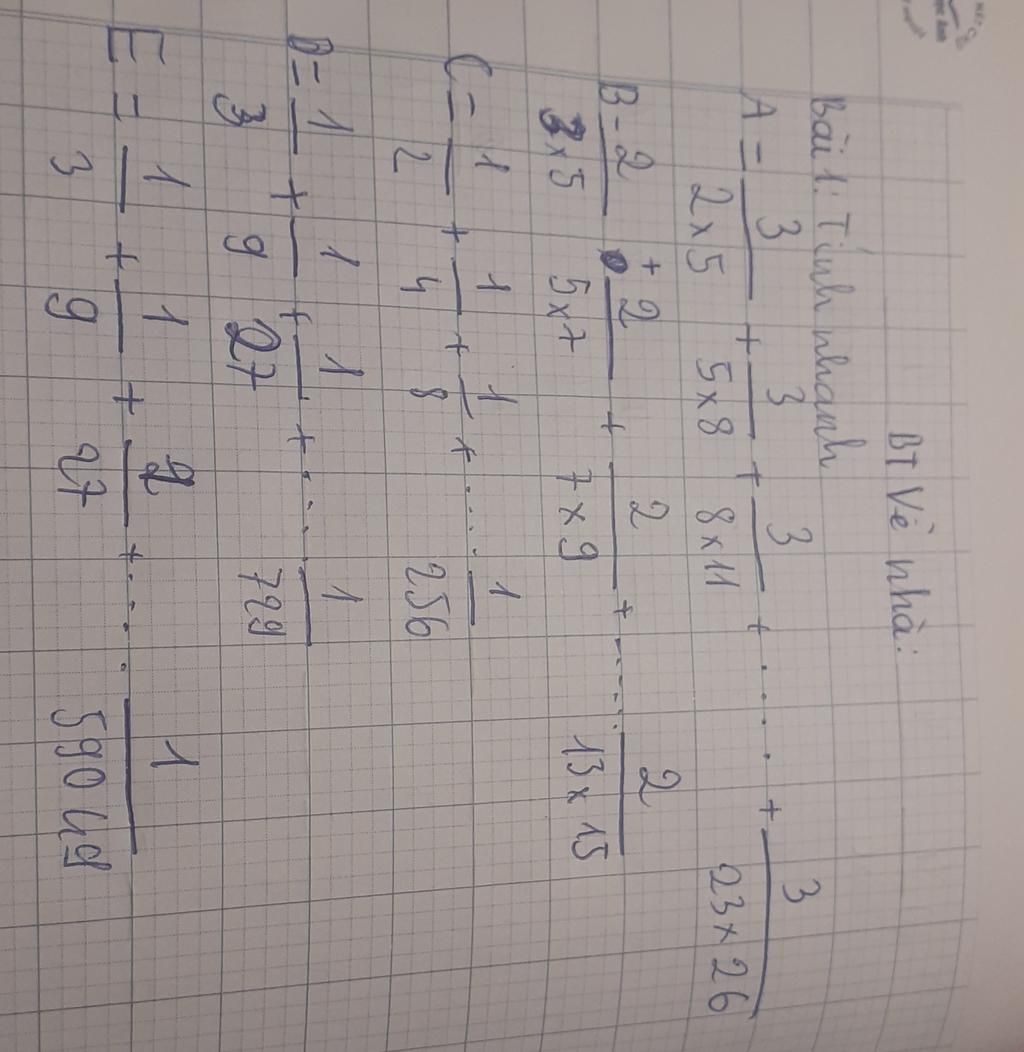 BT Về nhà:
Bài 1: Tính nhanh
A = 3/(2 x 5) + 3/(5 x 8) + 3/(8 x 11) + ..... + 3/(23 x 26)
B = 2/(3 x 5) + 2/(5 x 7) + 2/(7 x 9) + ..... 2/(13 x 15)
C = 1/2 + 1/4 + 1/8 + .... 1/256
D = 1/3 + 1/9 + 1/27 + .... 1/729
E = 1/3 + 1/9 + 1/27 + .... 1/59049